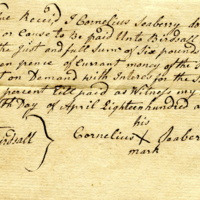 ue Receid I Cornelius Seabery do
or Cause to be paid Unto Birdsall
the Just and full Sum of Six pounds
en pence of Currant money of the S
t on Demand with Interes for the S
percent till paid as Witness my
th Day of April Eighteen hundred a
his
irdsall } Cornelius X Seaber
mark